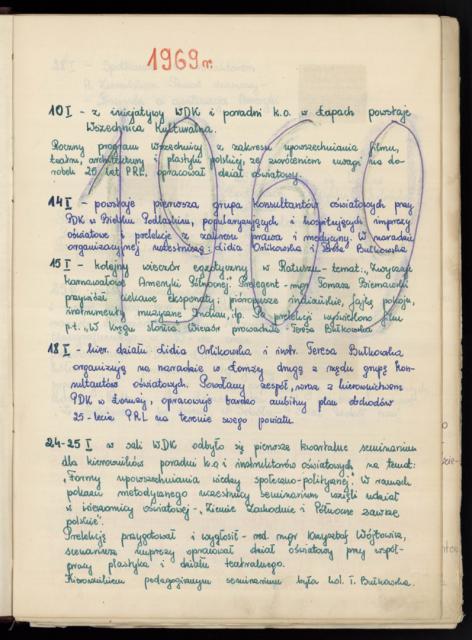 1969 r.
10 I - z inicjatywy WDK i poradni k.o. w Łapach powstaje
Wszechnica Kulturalna.
Roczny program Wszechnicy z zakresu upowszechniania filmu,
teatru, architektury i plastyki polskiej, ze zwróceniem uwagi na do-
robek 25 lat PRL, opracował dział oświatowy.
14 I - powstaje pierwsza grupa konsultantów oświatowych przy
PDK w Bielsku Podlaskim, popularyzujących i hospitujących imprezy
oświatowe - prelekcje z zakresu prawa i medycyny. W naradzie
organizacyjnej uczestniczą: Lidia Orlikowska i Teresa Bułkowska
15 I - kolejny wieczór egzotyczny w Ratuszu - temat: „Zwyczaje
karnawałowe Ameryki Północnej. Prelegent - mgr Tomasz Biernawski
przywiózł ciekawe eksponaty: pióropusze indiańskie, fajkę pokoju,
instrumenty muzyczne Indian, itp. Po prelekcji wyświetlono film
p.t. „W Kręgu słońca. Wieczór prowadziła Teresa Bułkowska
18 I - kier. działu Lidia Orlikowska i instr. Teresa Bułkowska
organizują na naradzie w Łomży drugą z rzędu grupę kon-
sultantów oświatowych. Powołany zespół, wraz z kierownictwem
PDK w Łomży, opracowuje bardzo ambitny plan obchodów
25-lecia PRL na terenie swego powiatu.
24-25 I w sali WDK odbyło się pierwsze kwartalne seminarium
dla kierowników poradni k.o i instruktorów oświatowych na temat:
„Formy upowszechniania wiedzy społeczno-politycznej". W ramach
pokazu metodycznego uczestnicy seminarium wzięli udział
w wieczornicy oświatowej - „Ziemie Zachodnie i Północne zawsze
polskie".
Prelekcję przygotował i wygłosił - red. mgr Krzysztof Wójtowicz,
scenariusz imprezy opracował dział oświatowy przy współ-
pracy plastyka i działu teatralnego.
Kierownikiem pedagogicznym seminarium była kol. T. Bułkowska.